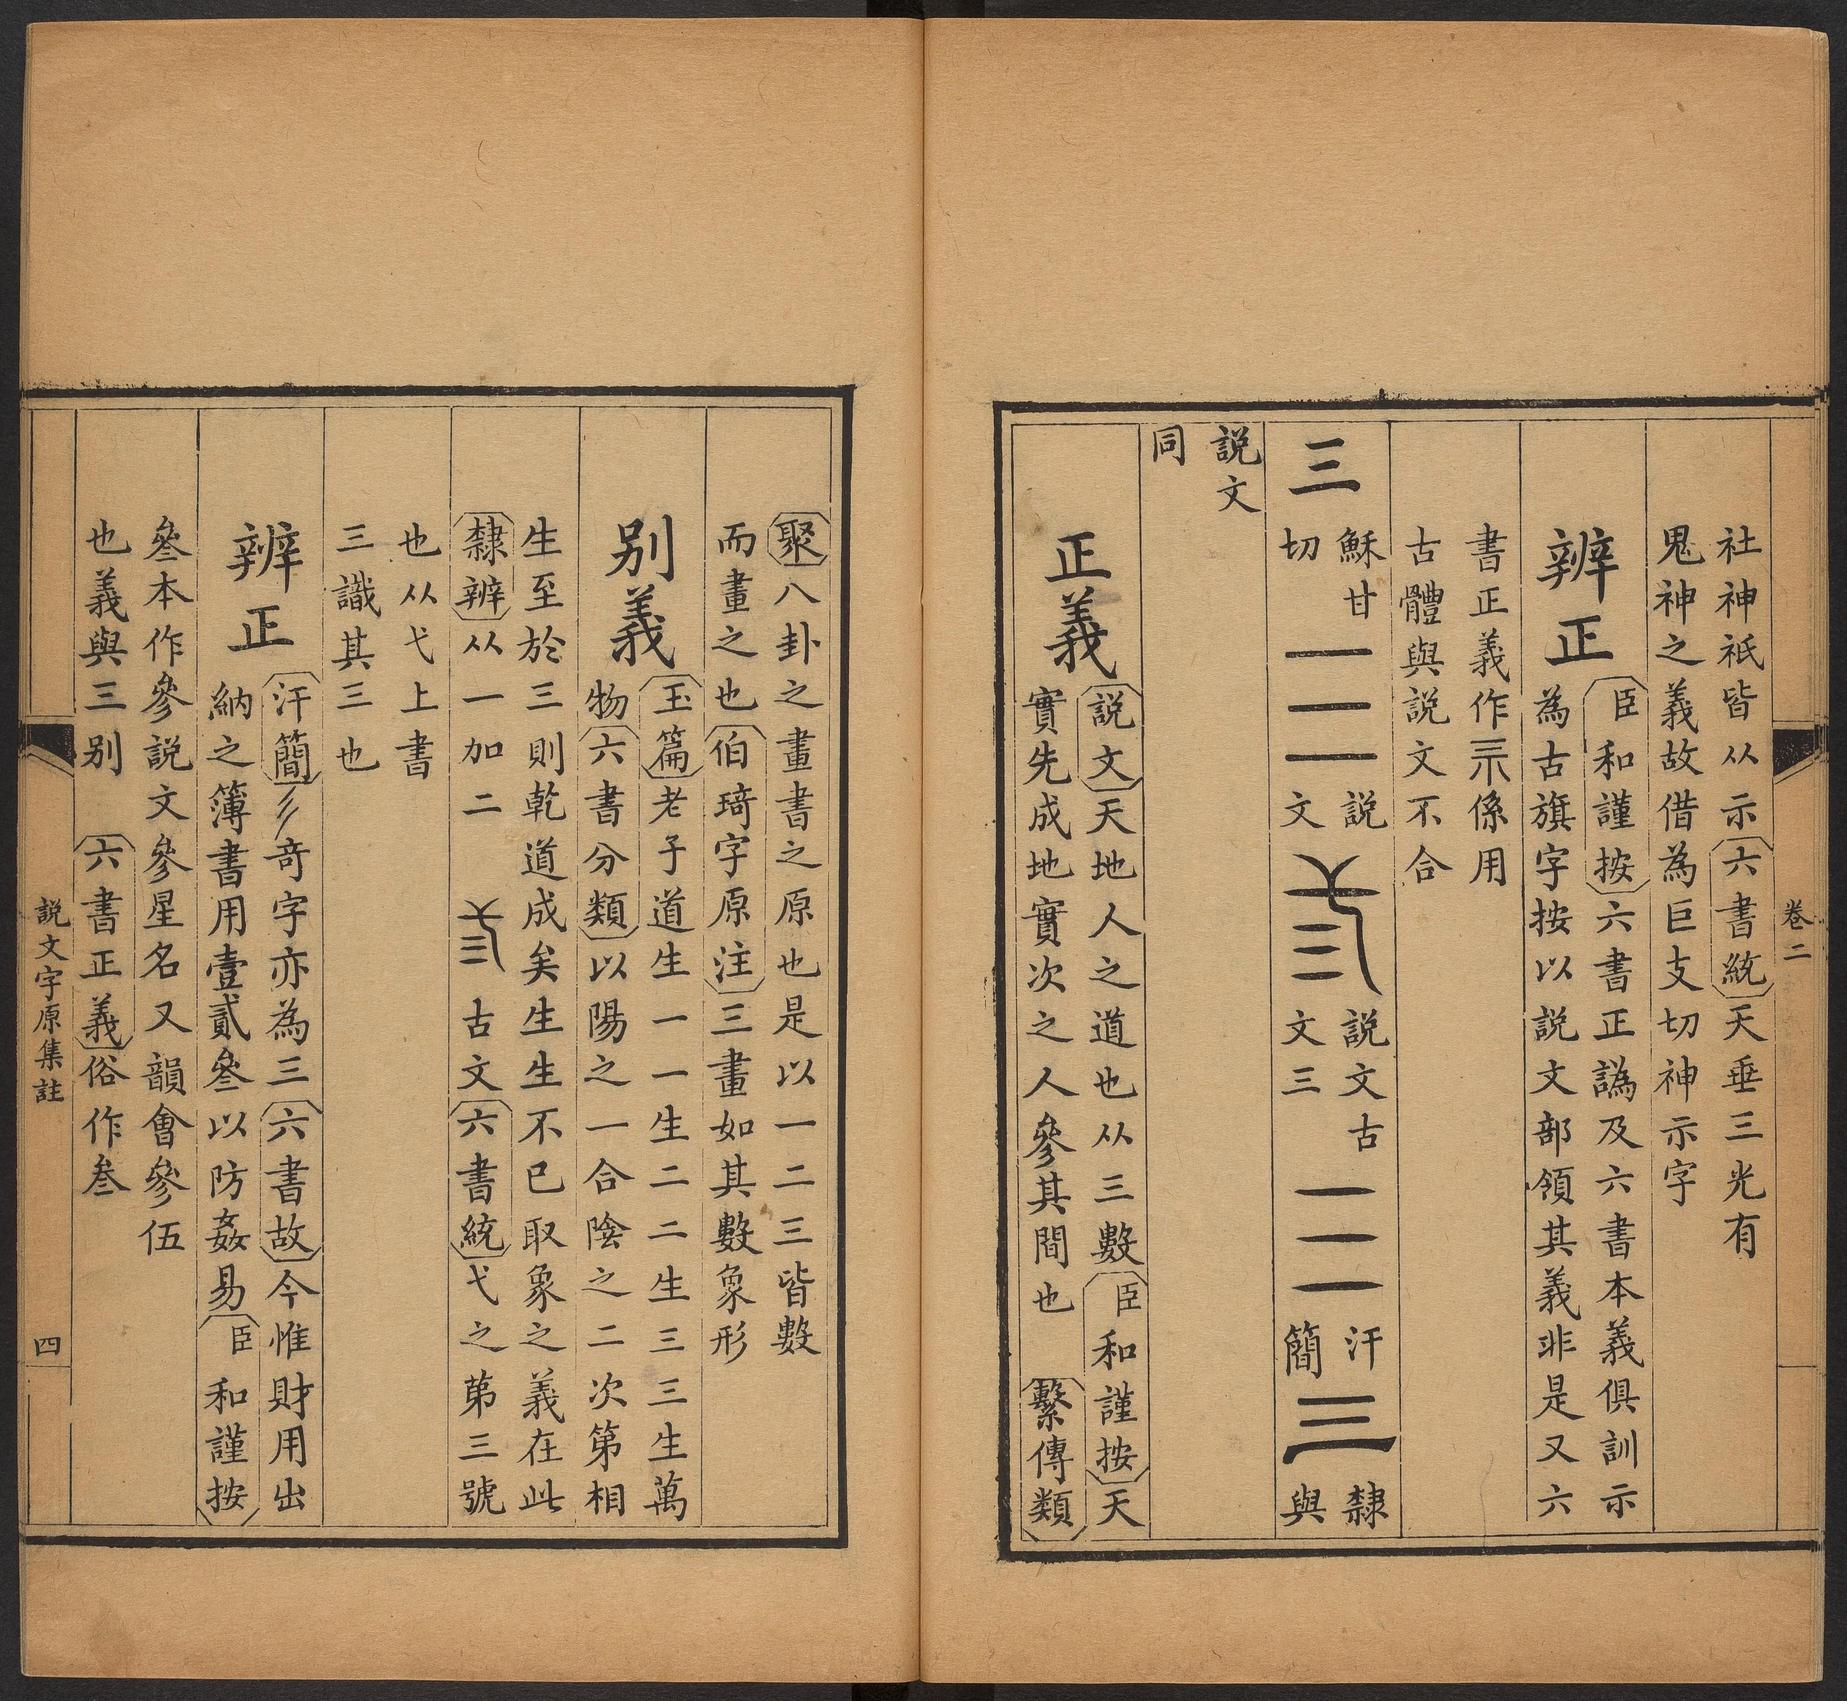 卷二
社神祇皆从示六書統天垂三光有
鬼神之義故借為巨支切神示字
辨正
臣和謹按六書正譌及六書本義俱訓示
為古旗字按以説文部領其義非是又六
書正義作示係用
古體與説文不合
三
穌甘
切
三
説
文
弎
説文古
文三
三
汗
簡
三
隸
與
説文
同
正義
説文天地人之道也从三數臣和謹按天
實先成地實次之人參其間也 繫傳類
聚八卦之畫書之原也是以一二三皆數
而畫之也伯琦字原注三畫如其數象形
别義
玉篇老子道生一一生二二生三三生萬
物六書分類以陽之一合陰之二次第相
生至於三則乾道成矣生生不已取象之義在此
隸辨从一加二 弎 古文六書統弋之第三號
也从弋上書
三識其三也
辨正
汗簡彡奇字亦為三六書故今惟財用出
納之簿書用壹貳叄以防姦易臣和謹按
叄本作參説文參星名又韻會參伍
也義與三别 六書正義俗作叁
説文字原集註
四